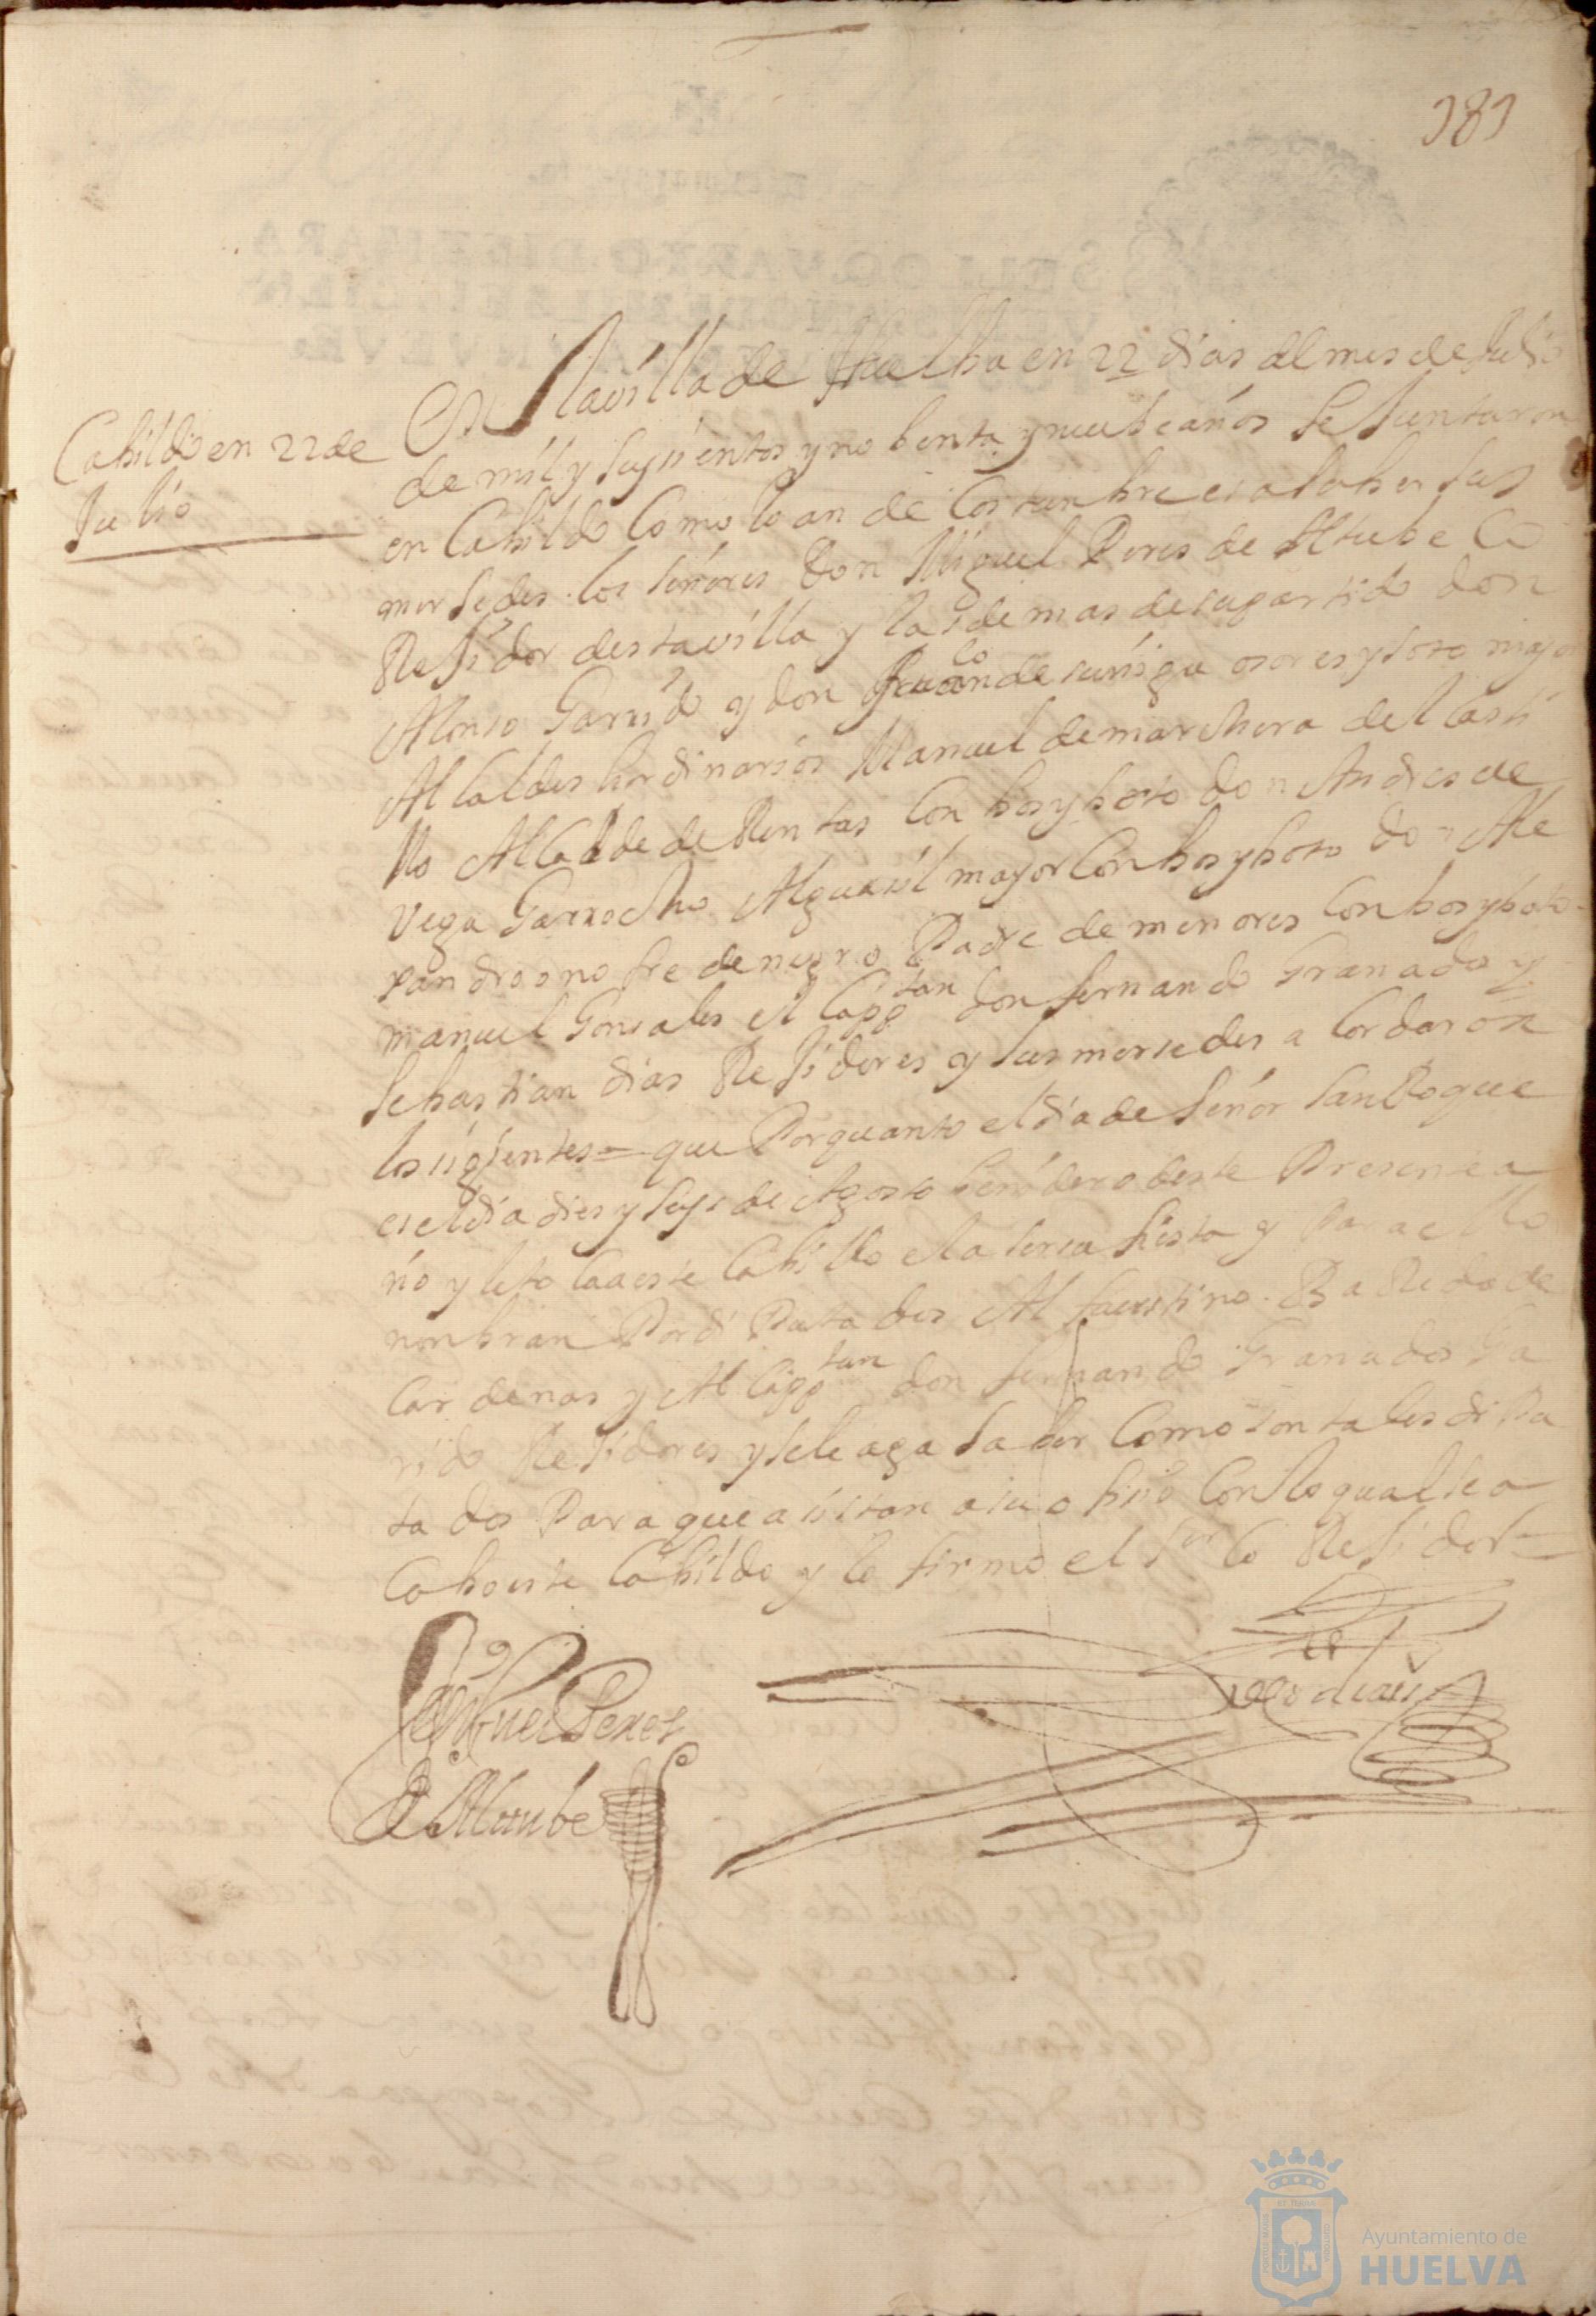 181
Cabildo en 22 de
Julio
En la villa de Huelba en 22 dias del mes de Julio
de mil y seysientos y nobenta y nuebe años se Juntaron
en Cabildo Como lo an de Costunbre es a saber sus
mersedes los señores Don Miguel Peres de Altube Co
Residor desta villa y las demas de su partido don
Alonso Garrido y don Juan de suñiga osores y soto mayor
Alcaldes hordinarios Manuel de marchena del Casti
llo Alcalde de Rentas Con bos y boto don Andres de
Vega Garrocho Alguasil mayor Con bos y boto Don Ale
xandro onofre de negro Padre de menores Con bos y boto
manuel Gonsales el Capptan don fernando Granados y
Sebastian dias Residores y sus mersedes a Cordaron
lo siguientes = que Porquanto el dia de señor San Roque
es el dia dies y seys de Agosto benidero deste Presente a
ño y le toca a este Cabildo el aserca fiesta y Para ello
nonbran Por di Putados Al faustino Ba Redo de
Cardenas y Al Capptan don fernando Granados Ga
rido Residores y se le aga saber Como son tales di Pu
tados Para que asistan a su ofisio Con lo qual se a
Cabo este Cabildo y lo firmo el Sor Co Residor =
Miguel Peres
de Altube
Ayuntamiento de
HUELVA